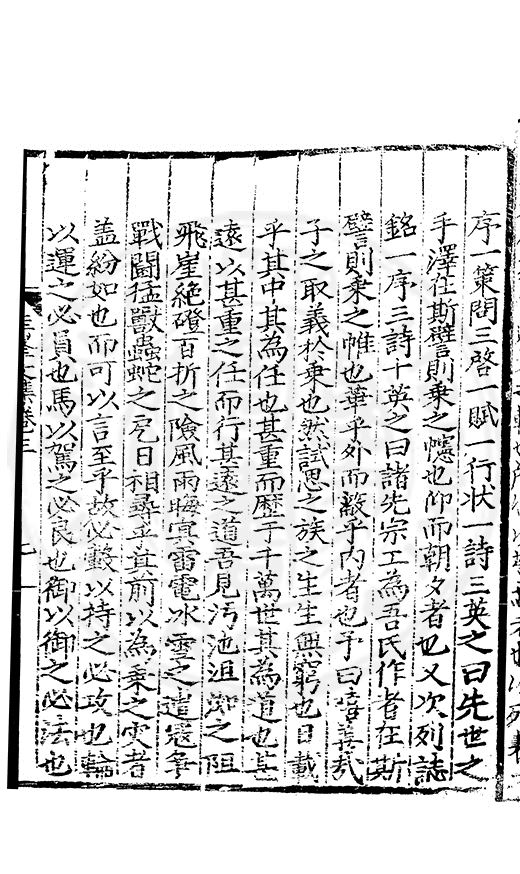 序一策問三啓一賦一行状一詩三英之曰先世之
手澤在斯譬則乗之幰也仰而朝夕者也又次列誌
銘一序三詩十英之曰諸先宗工為吾氏作者在斯
譬則乗之帷也華乎外而蔽乎内者也予曰嘻善㢤
子之取義扵乗也然試思之族之生生無窮也日載
乎其中其為任也甚重而歴于千萬世其為道也甚
遠以甚重之任而行甚遠之道吾見汚池沮洳之阻
飛崖絶磴百折之險風雨晦冥雷電氷雪之遭寇爭
戰鬪猛獸蟲蛇之戹日相尋立直前以為乗之灾者
盖紛如也而可以言至乎故必轂以持之必攻也輪
以運之必員也馬以駕之必良也御以御之必法也
文集卷三